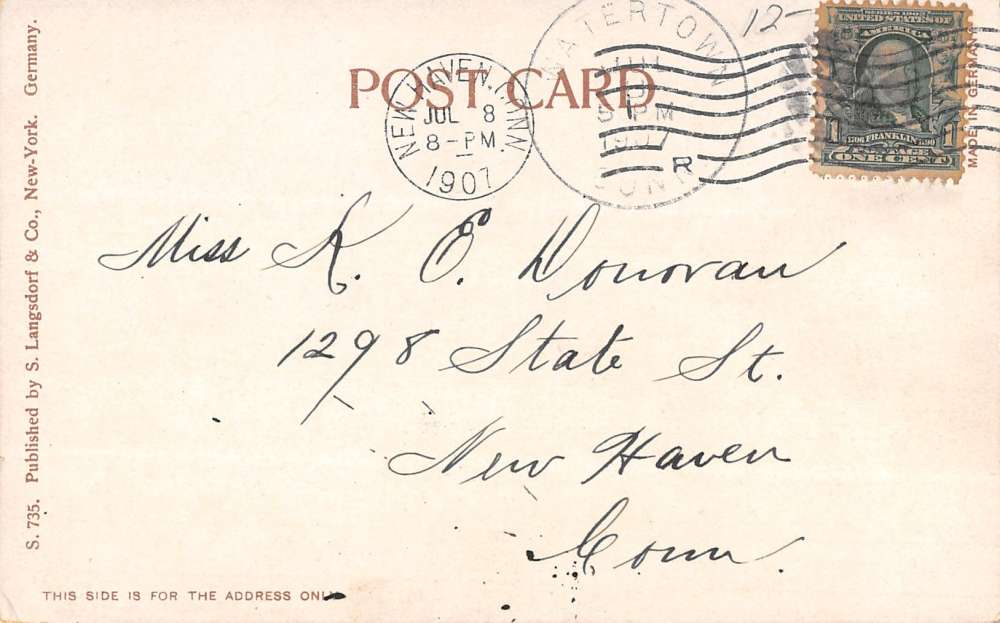 12-
POST CARD
NEW HAVEN, CONN.
JUL 8
8-PM
1907
WATERTOWN
JUL
5 PM
1907
CONN
R
SERIES 1902
UNITED STATES OF
AMERICA
1706 FRANKLIN 1790
1 1
POSTAGE
ONE CENT
MADE IN GERMANY
Miss K. E. Donovan
1298 State St.
New Haven
Conn.
S. 735. Published by S. Langsdorf & Co., New-York. Germany.
THIS SIDE IS FOR THE ADDRESS ONLY